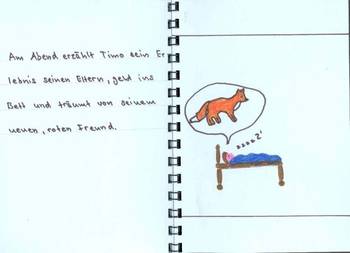 Am Abend erzählt Timo sein Er
lebnis seinen Eltern, geld ins
Bett und träumt von seinem
neuen, roten Freund.
zzzzZ'